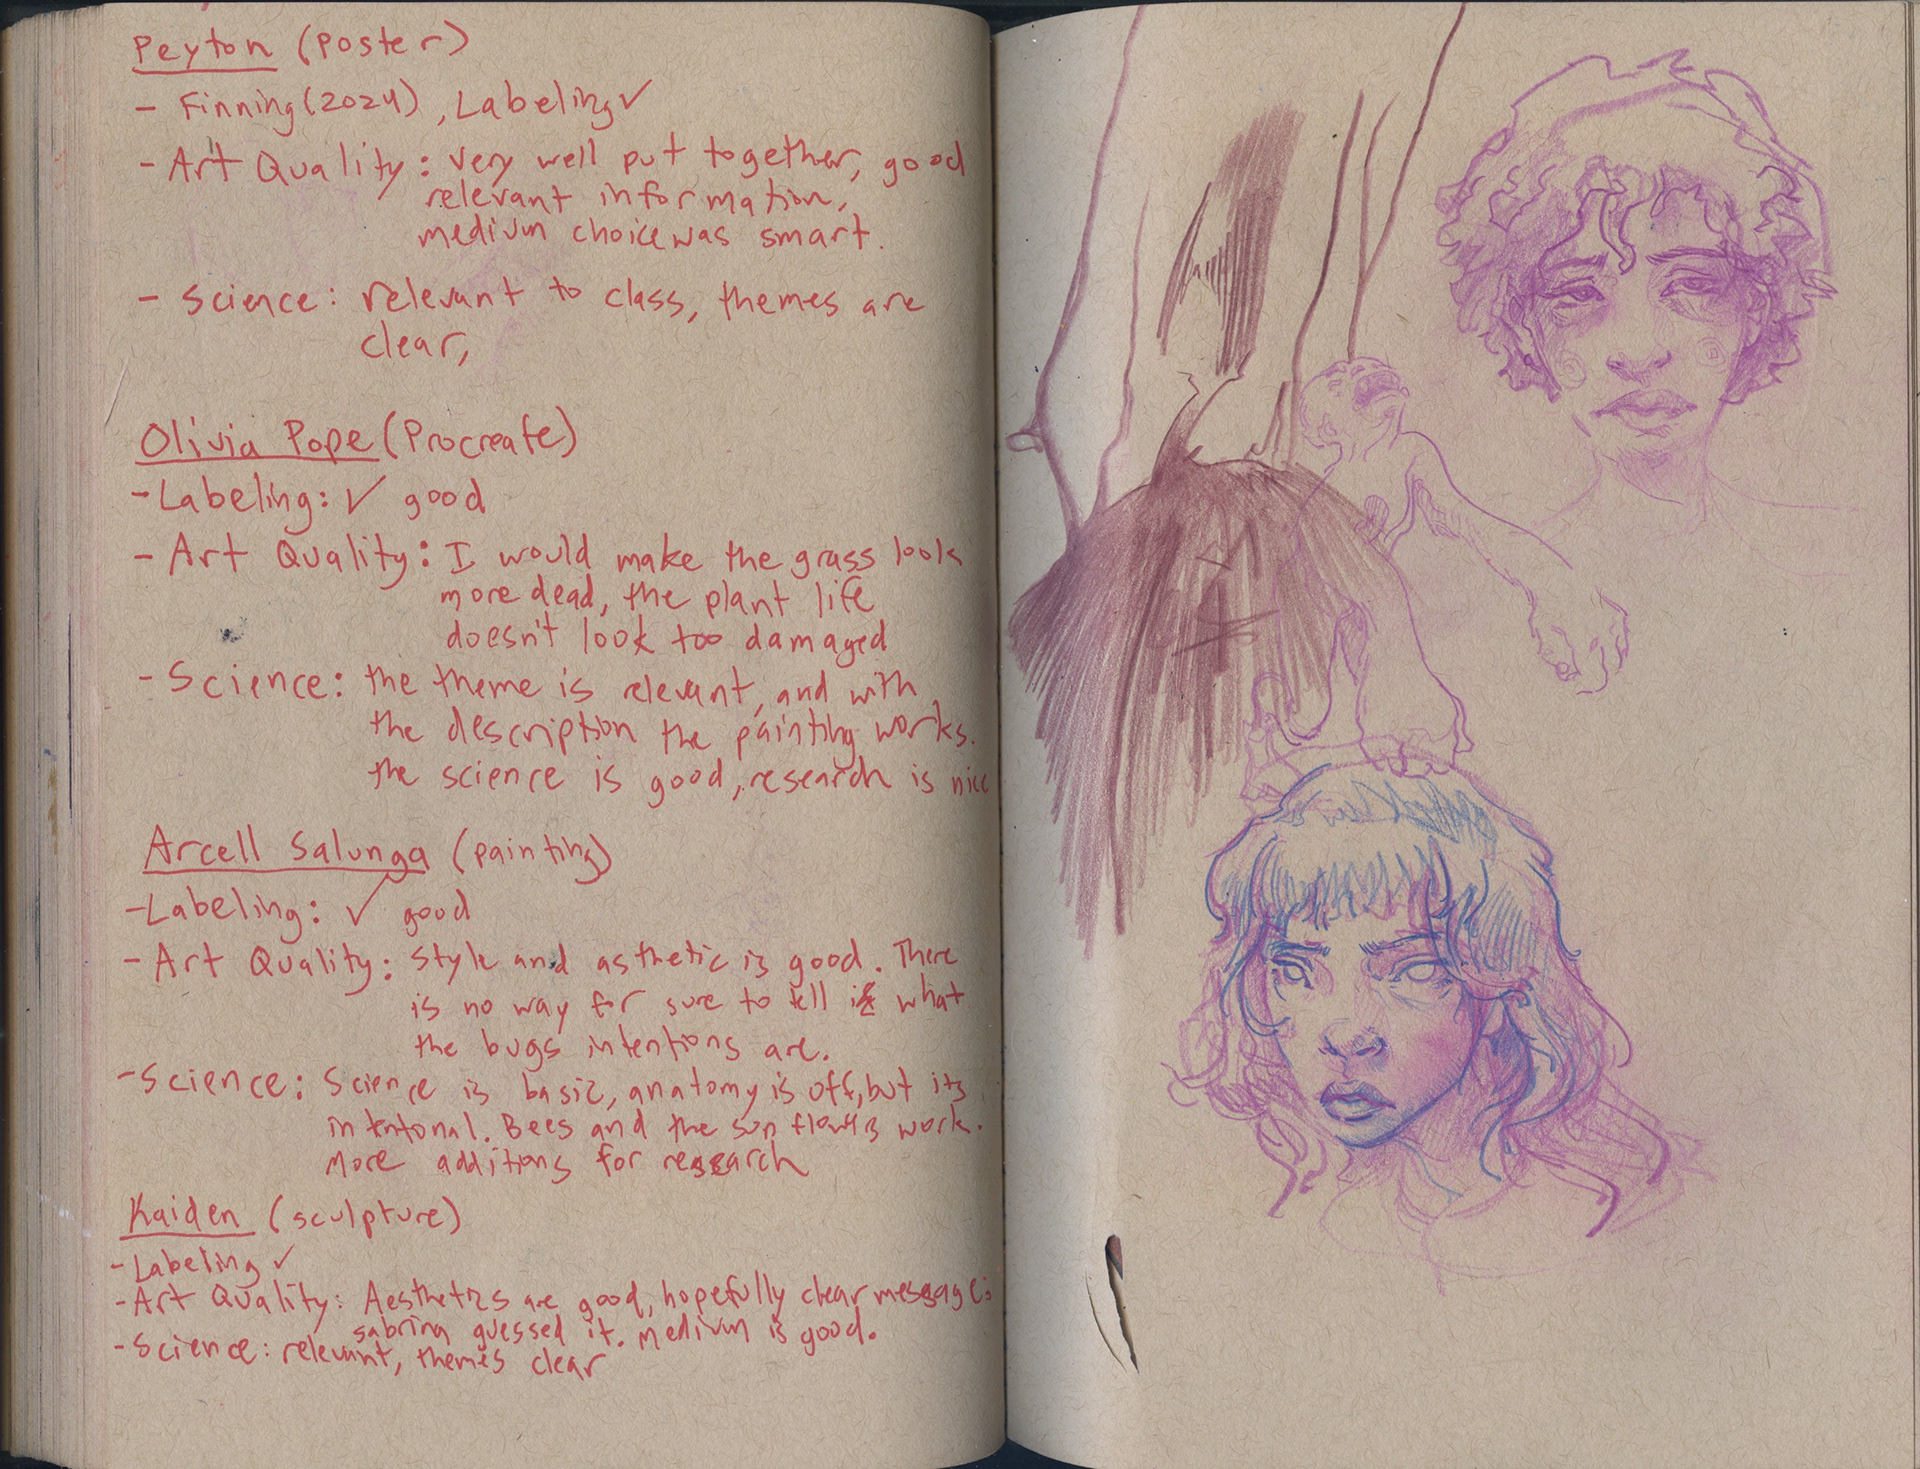 Peyton (Poster)
- Finning (2024), Labeling ✓
- Art Quality: very well put together, good
relevant information,
medium choice was smart.
- Science: relevant to class, themes are
clear,
Olivia Pope (Procreate)
- Labeling: ✓ good
- Art Quality: I would make the grass look
more dead, the plant life
doesn't look too damaged
- Science: the theme is relevant, and with
the description the painting works.
the science is good, research is nice
Arcell Salunga (painting)
- Labeling: ✓ good
- Art Quality: Style and asthetic is good. There
is no way for sure to tell what
the bugs intentions are.
- Science: Science is basic, anatomy is off, but its
intentonal. Bees and the sun flowers work.
More additions for research
Kaiden (sculpture)
- Labeling ✓
- Art Quality: Aesthetics are good, hopefully clear message:
sabrina guessed it. Medium is good.
- Science: relevant, themes clear